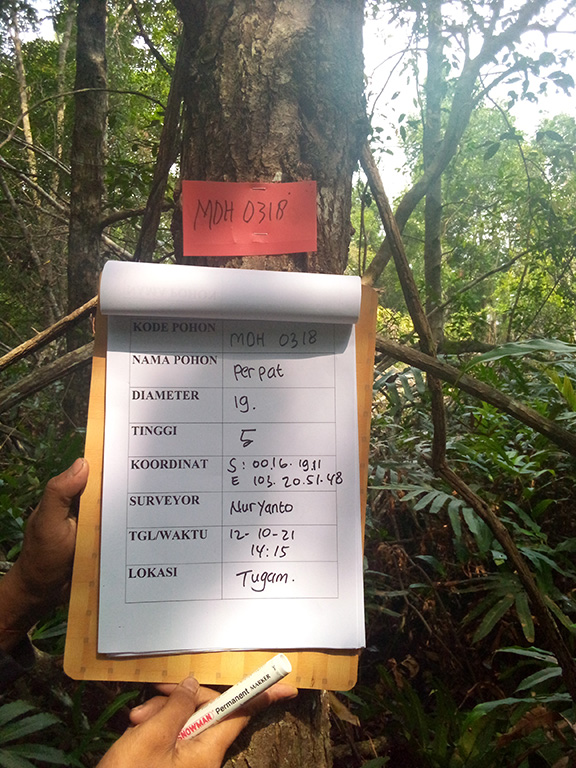 MDH 0318
KODE POHON MDH 0318
NAMA POHON Perpat
DIAMETER 19.
TINGGI 5
KOORDINAT S : 00.16.19.11
E 103.20.51.48
SURVEYOR Nuryanto
TGL/WAKTU 12-10-21
14:15
LOKASI Tugam.
SNOWMAN Permanent MARKER